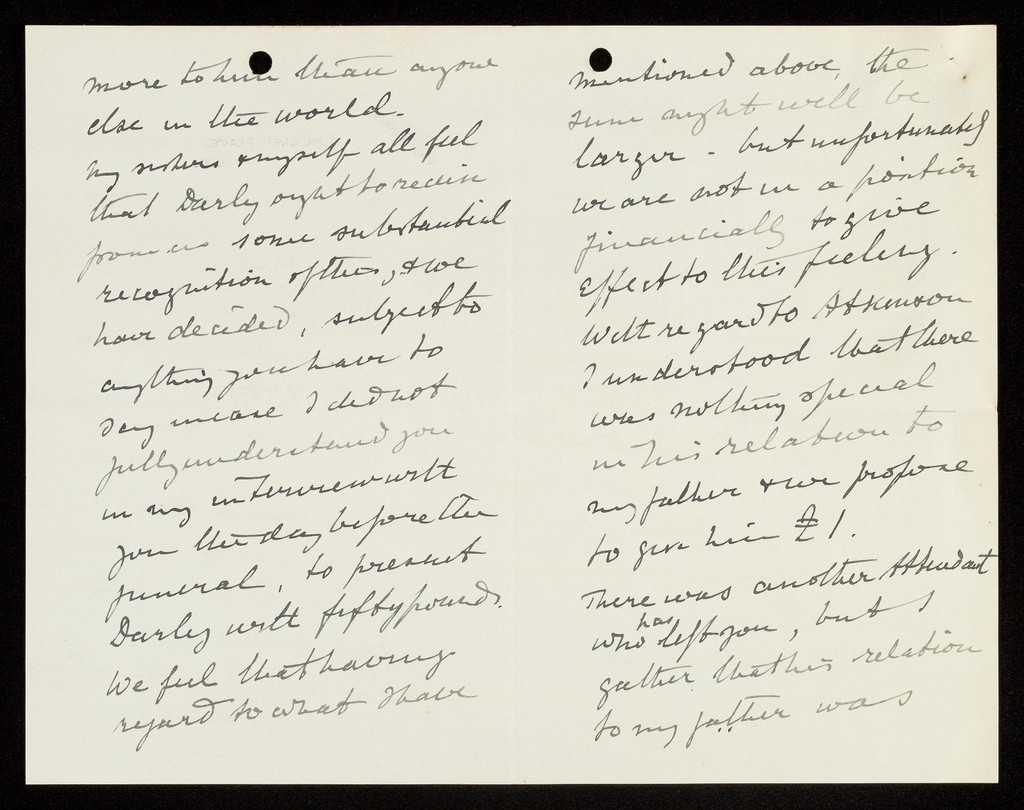 more to him than anyone
else in the world.
My sisters & myself all feel
that Darley ought to receive
from us some substantial
recognition of this, & we
have decided, subject to
anything you have to
say in case I did not
fully understand you
in my interview with
you the day before the
funeral, to present
Darley with fifty pounds.
We feel that having
regard to what I have
mentioned above, the
sum might well be
larger - but unfortunately
we are not in a position
financially to give
effect to this feeling.
With regard to Atkinson
I understood that there
was nothing special
in his relation to
my father & we propose
to give him £1.
There was another Attendant
who has left you, but I
gather that his relation
to my father was